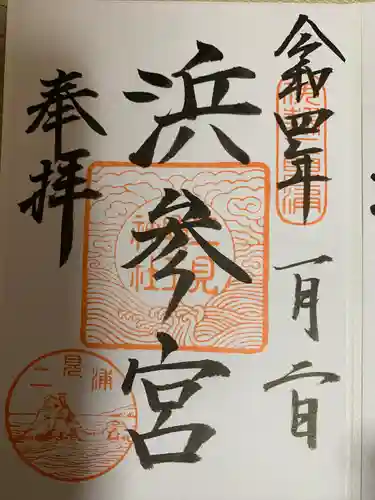 令和四年
一月二日
浜参宮
奉拝
二見
神社
二見浦